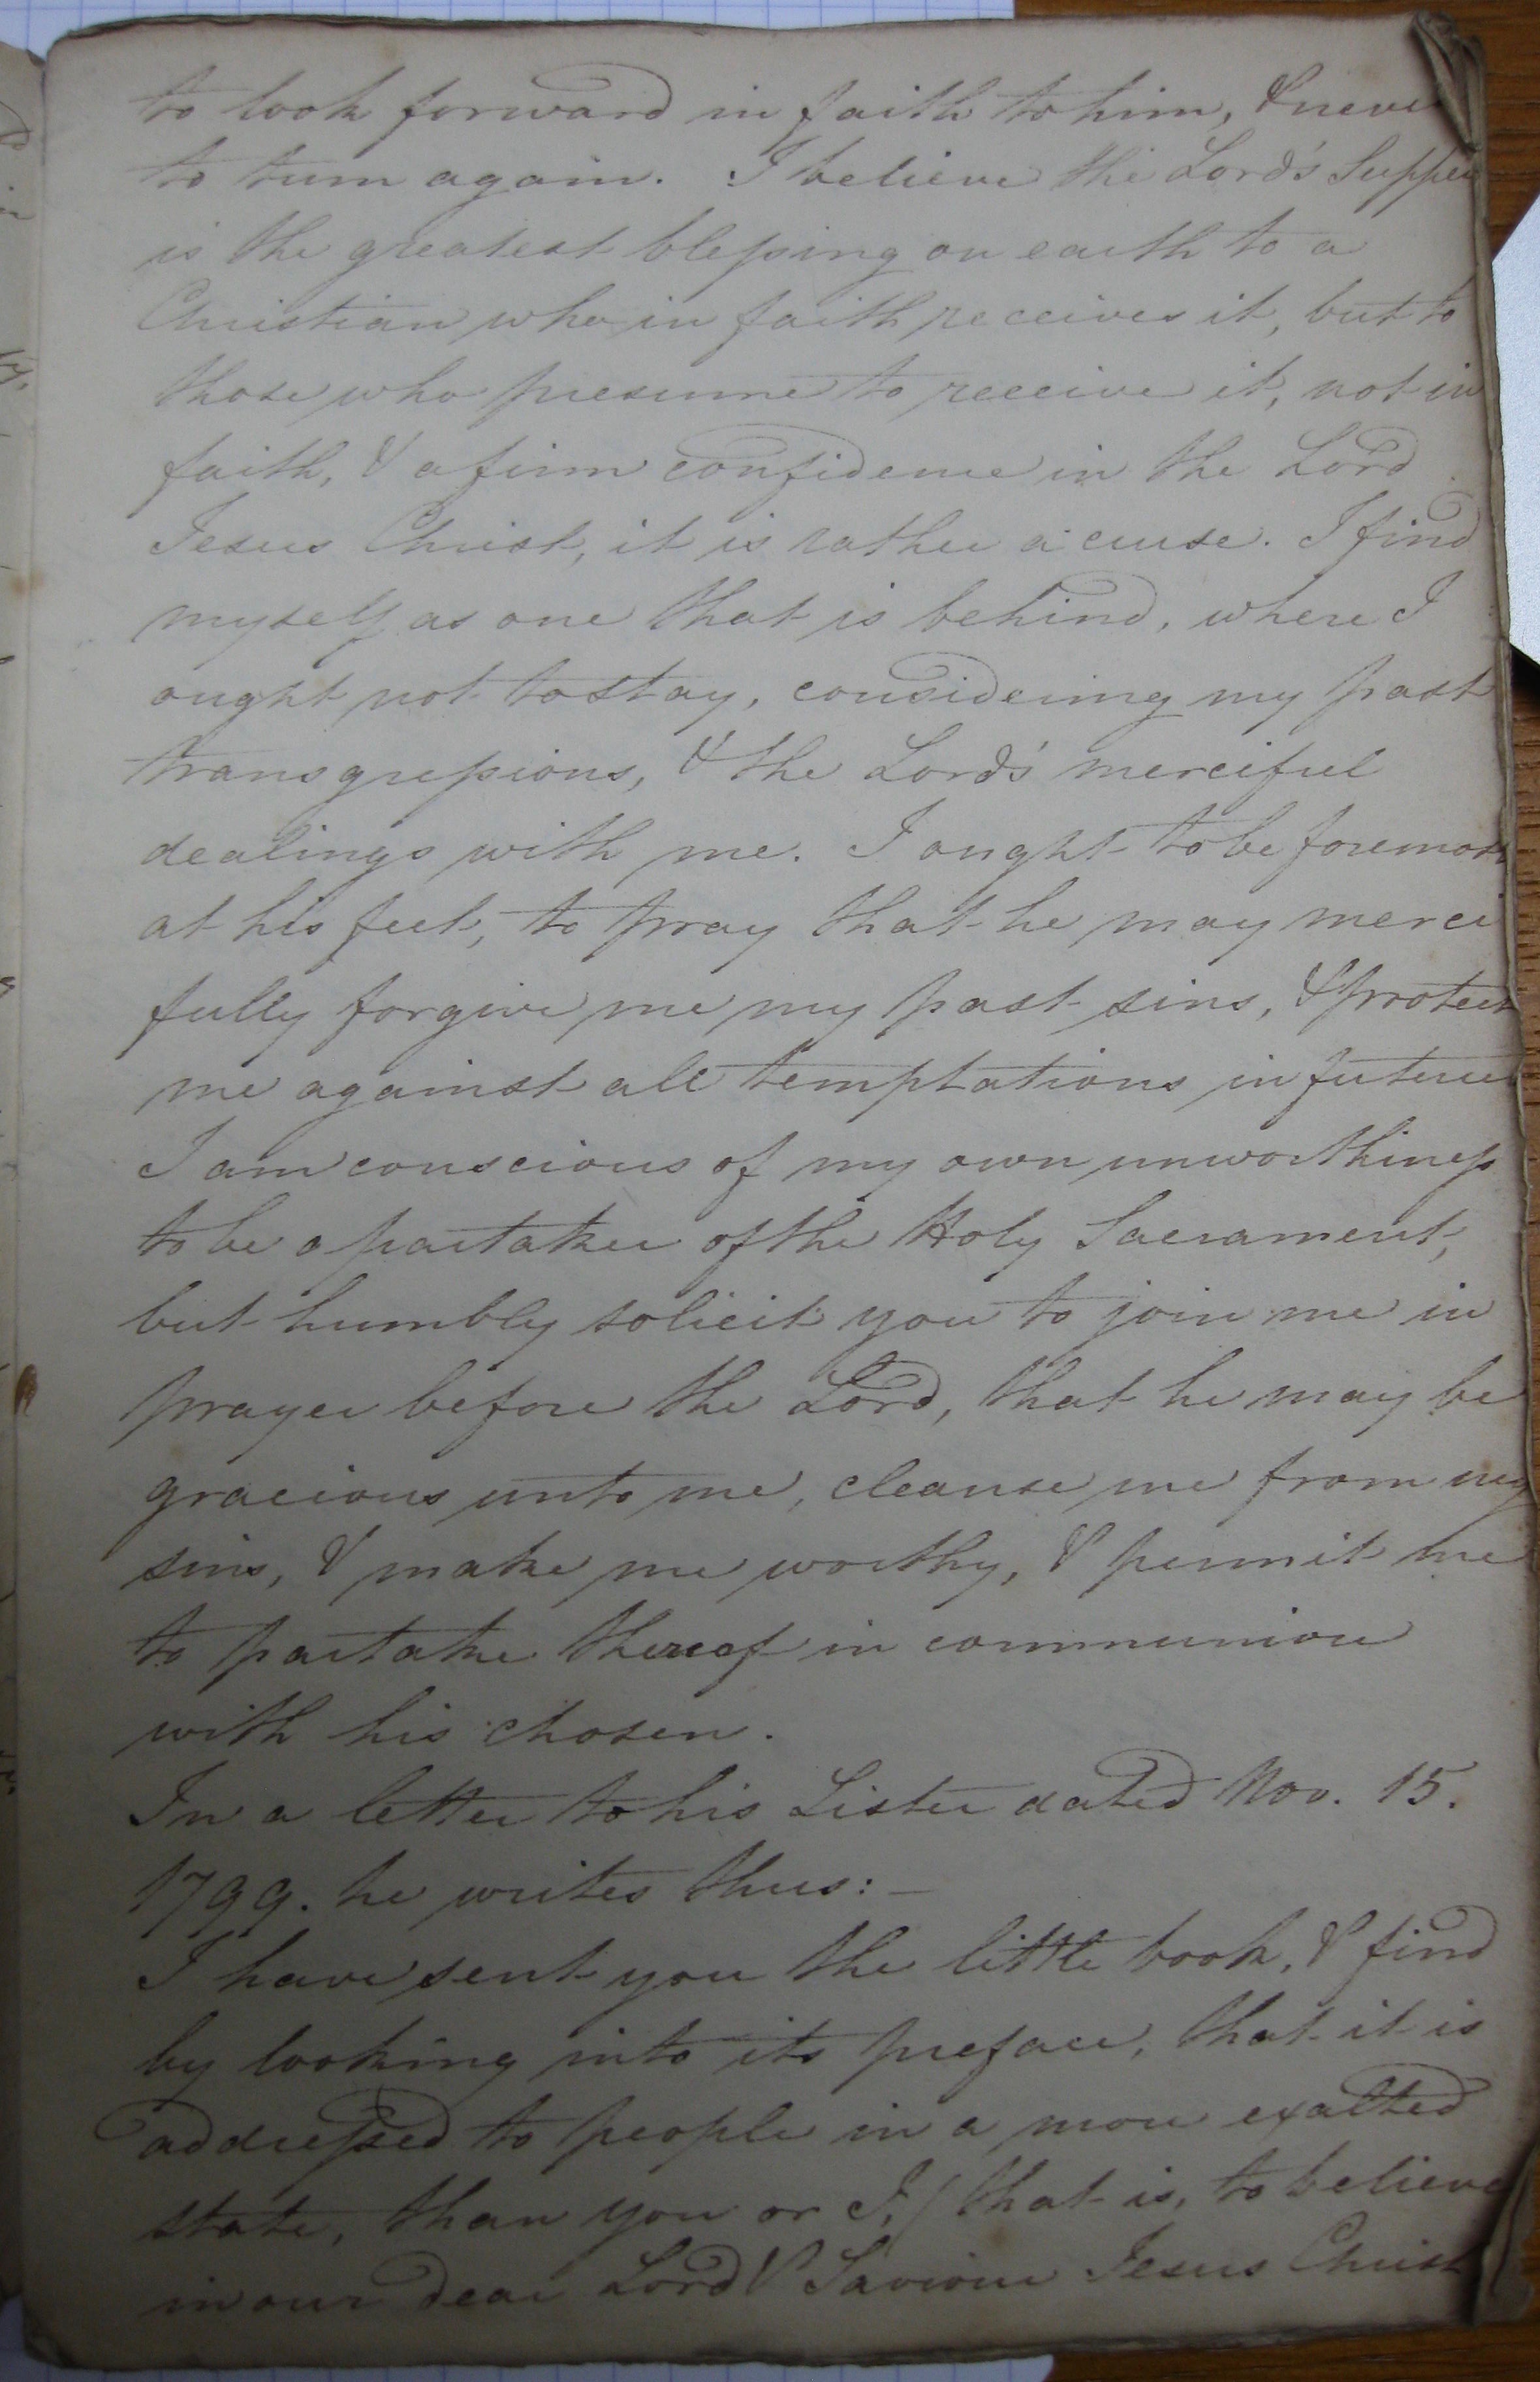 to look forward in faith to him, & never
to turn again. I believe the Lord's Supper
is the greatest blessing on earth to a
Christian who in faith receives it, but to
those who presume to receive it, not in
faith, & a firm confidence in the Lord
Jesus Christ, it is rather a curse. I find
myself as one that is behind, where I
ought not to stay, considering my past
transgressions, & the Lord's merciful
dealings with me. I ought to be foremost
at his feet, to pray that he may merci
fully forgive me my past sins, & protect
me against all temptations in future
I am conscious of my own unworthiness
to be a partaker of the Holy Sacrament,
but humbly solicit you to join me in
prayer before the Lord, that he may be
gracious unto me, cleanse me from my
sins, & make me worthy, & permit me
to partake thereof in communion
with his chosen.
In a letter to his Sister dated Nov. 15.
1799. he writes thus:—
I have sent you the little book, & find
by looking into its preface, that it is
addressed to people in a more exalted
state, than you or I, / that is, to believe
in our dear Lord & Saviour Jesus Christ